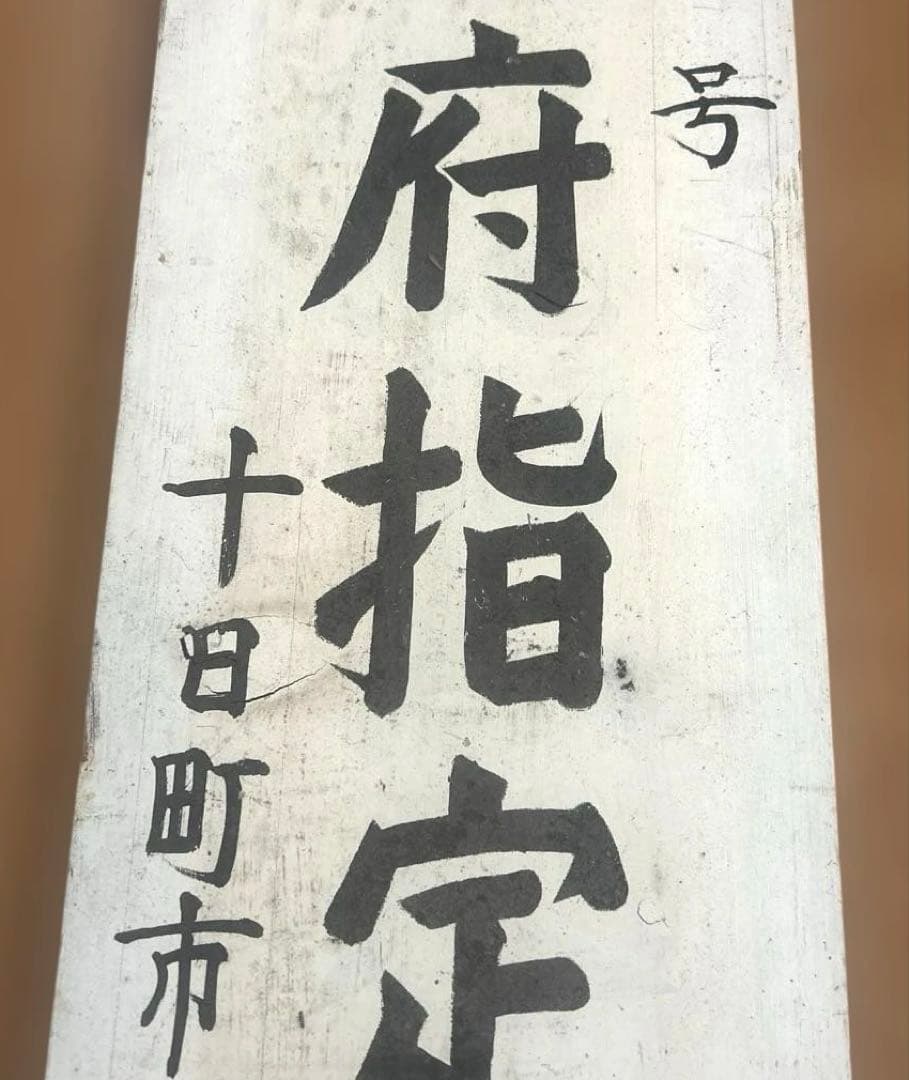 号
府指定
十日町市